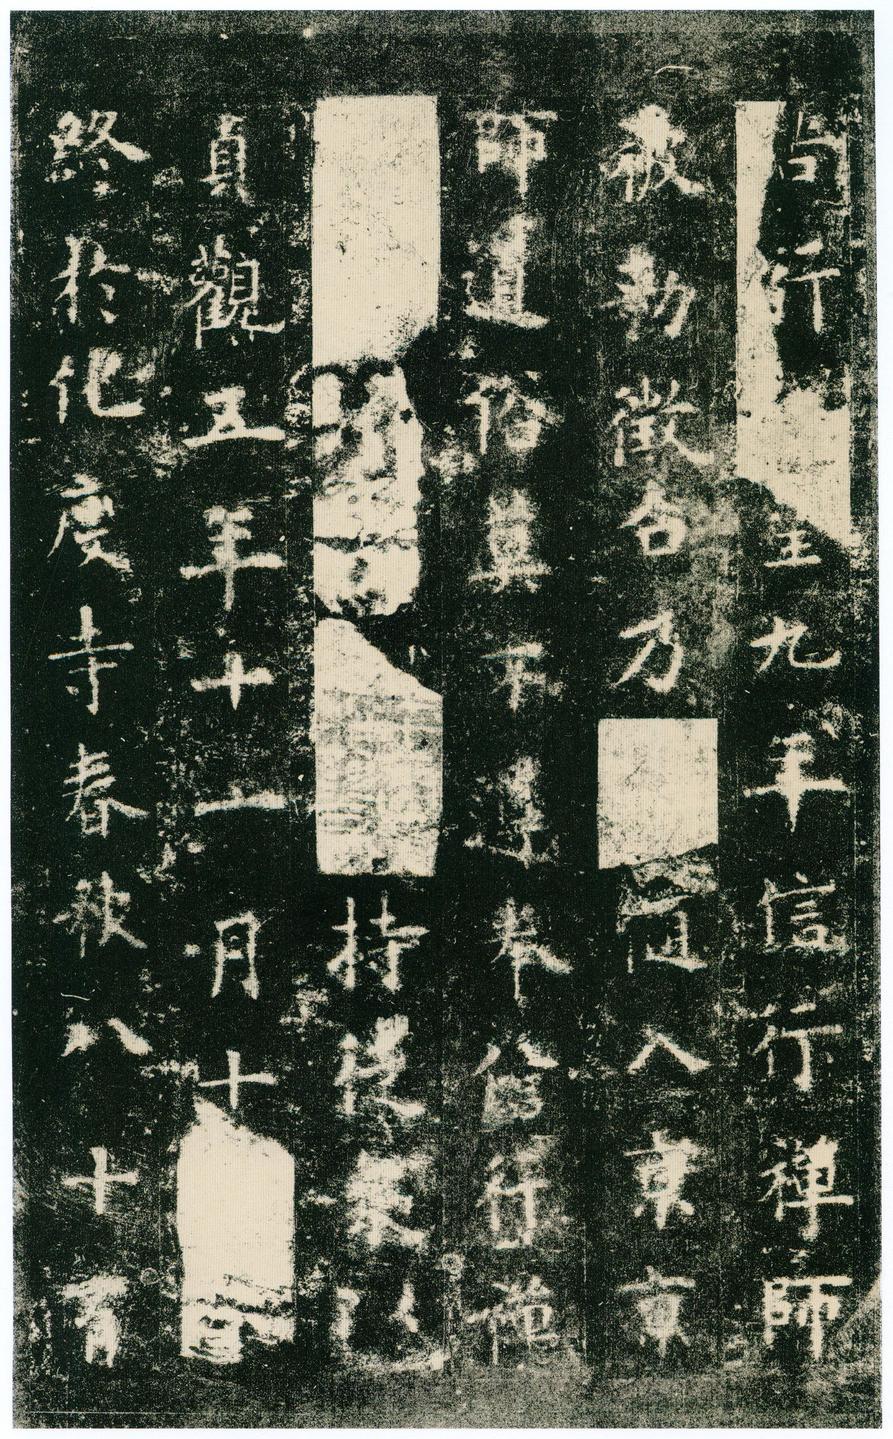 苦行 至九年信行禪師
被勑徵召乃 随入京京
師道俗莫不遵奉信行禪
持徒衆以
貞觀五年十一月十
終於化度寺春秋八十有